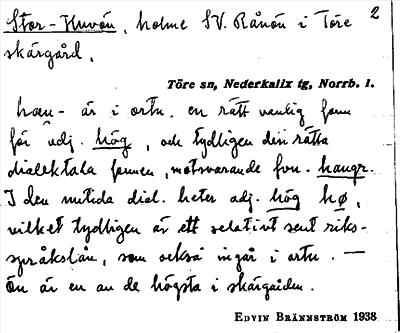 Stor-Huvön, holme SV. Rånön i Töre 2
skärgård.
Töre sn, Nederkalix tg, Norrb. l.
hæu- är i ortn. en rätt vanlig form
för adj. hög, och tydligen den rätta
dialektala formen, motsvarande fvn. haugr.
I den nutida dial. heter adj. hög hø,
vilket tydligen är ett relativt sent riks-
språkslån, som också ingår i ortn. —
Ön är en av de högsta i skärgården.
EDVIN BRÄNNSTRÖM 1938